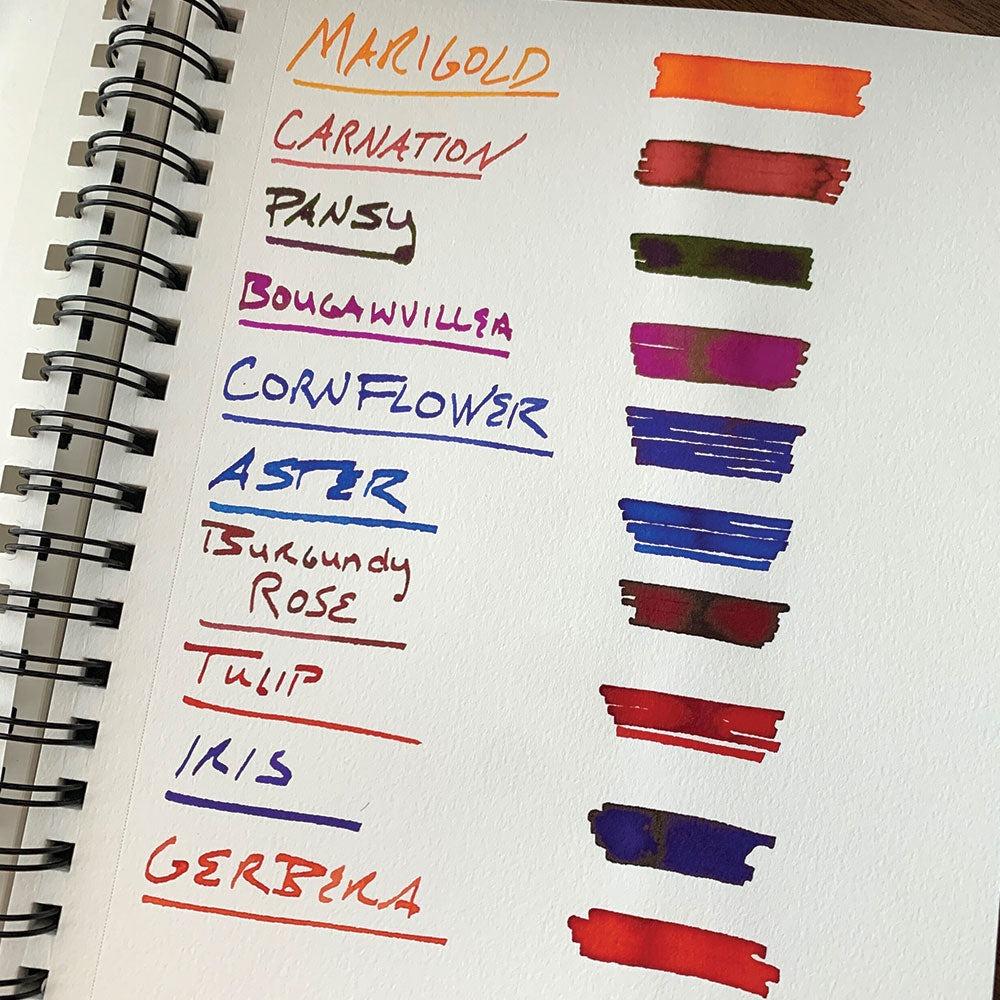 MARIGOLD
CARNATION
PANSY
BOUGAWVILLEA
CORNFLOWER
ASTER
Burgundy
ROSE
TULIP
IRIS
GERBERA